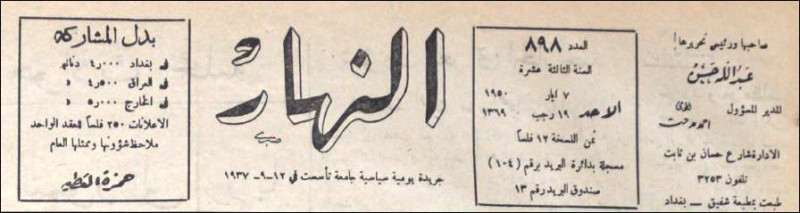 صاحبها ورئيس تحريرها!
عبدالله حسن
المدير المسؤول
الادارة شارع حسان بن ثابت
تلفون ٣٢٥٣
طبعت بمطبعة شفيق – بغداد
العدد ٨٩٨
السنة الثالثة عشرة
٧ ايار ١٩٥٠
الاحد
١٩ رجب ١٣٦٩
ثمن النسخة ١٢ فلساً
مسجلة بدائرة البريد برقم (١٠٤)
صندوق البريد رقم ١٣
النهار
جريدة يومية سياسية جامعة تأسست في ١٢-٩-١٩٣٧
بدل المشاركة
في بغداد ٤٫٠٠٠ دنانير
في العراق ٤٫٥٠٠ »
في الخارج ٥٫٠٠٠ »
الاعلانات ٢٥٠ فلساً للعقد الواحد
ملاحظ شؤونها وممثلها العام
حمزة